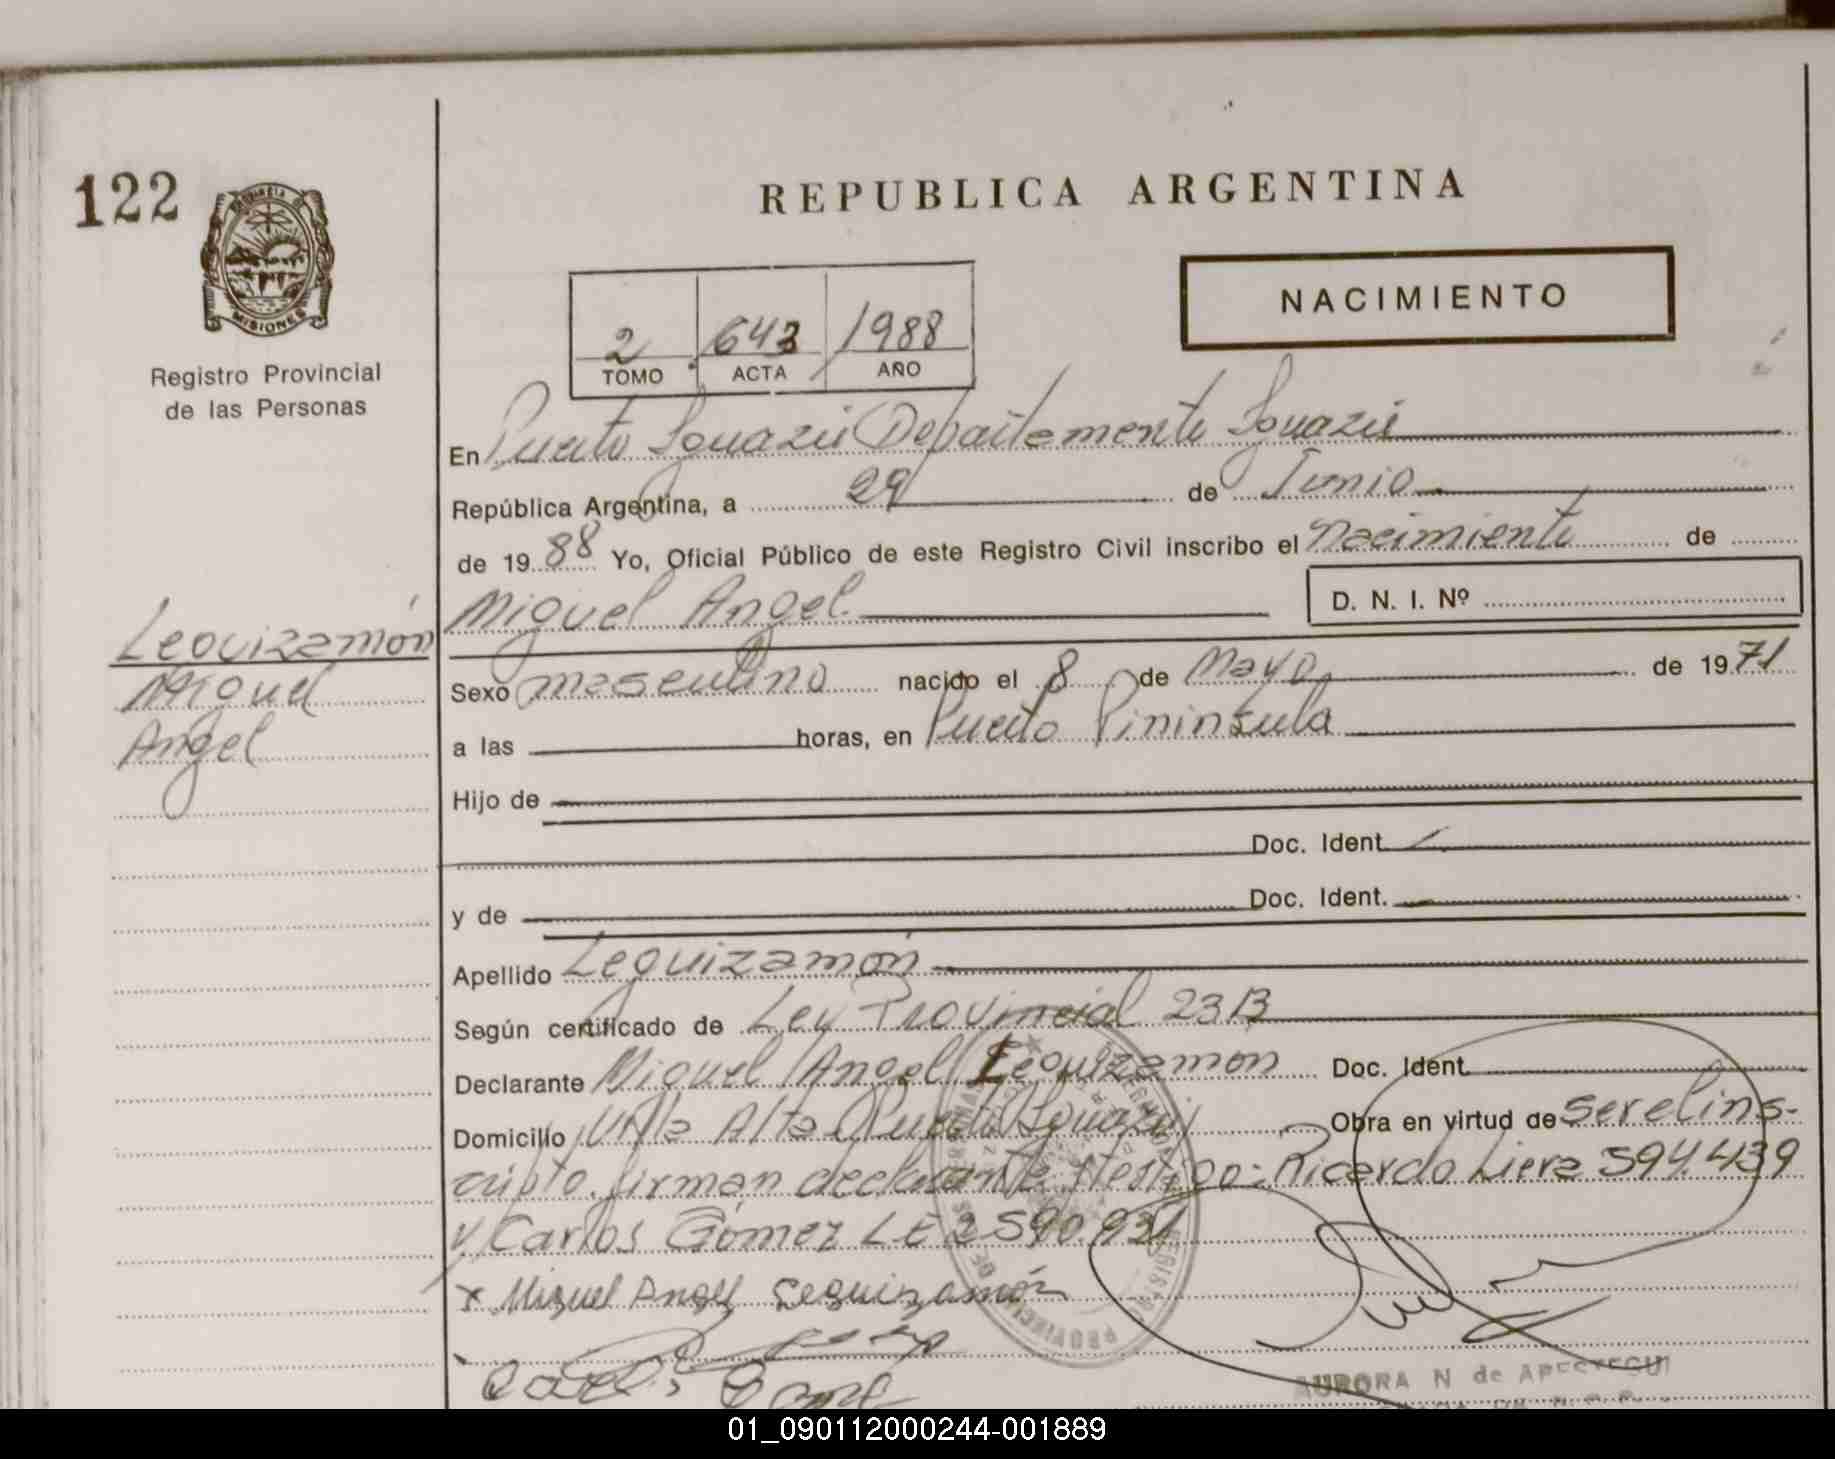 122
PROVINCIA D
MISIONES
Registro Provincial
de las Personas
REPUBLICA ARGENTINA
NACIMIENTO
2 643 1988
TOMO ACTA AÑO
En Puerto Iguazú Departamento Iguazú
República Argentina, a 29 de Junio
de 19 88 Yo, Oficial Público de este Registro Civil inscribo el Nacimiento de
Miguel Angel D. N. I. Nº
Leguizamón
Miguel
Angel
Sexo masculino nacido el 8 de Mayo de 19 71
a las horas, en Puerto Pininsula
Hijo de
Doc. Ident.
y de Doc. Ident.
Apellido Leguizamón
Según certificado de Ley Provincial 2313
Declarante Miguel Angel Leguizamon Doc. Ident.
Domicilio Villa Alta Puerto Iguazú Obra en virtud de ser el ins-
cripto. firman declarante y testigo: Ricardo Liera 594.439
y Carlos Gómez LE 2590.931
x Miguel Angel Leguizamón
AURORA N de APESTEGUI
01_090112000244-001889